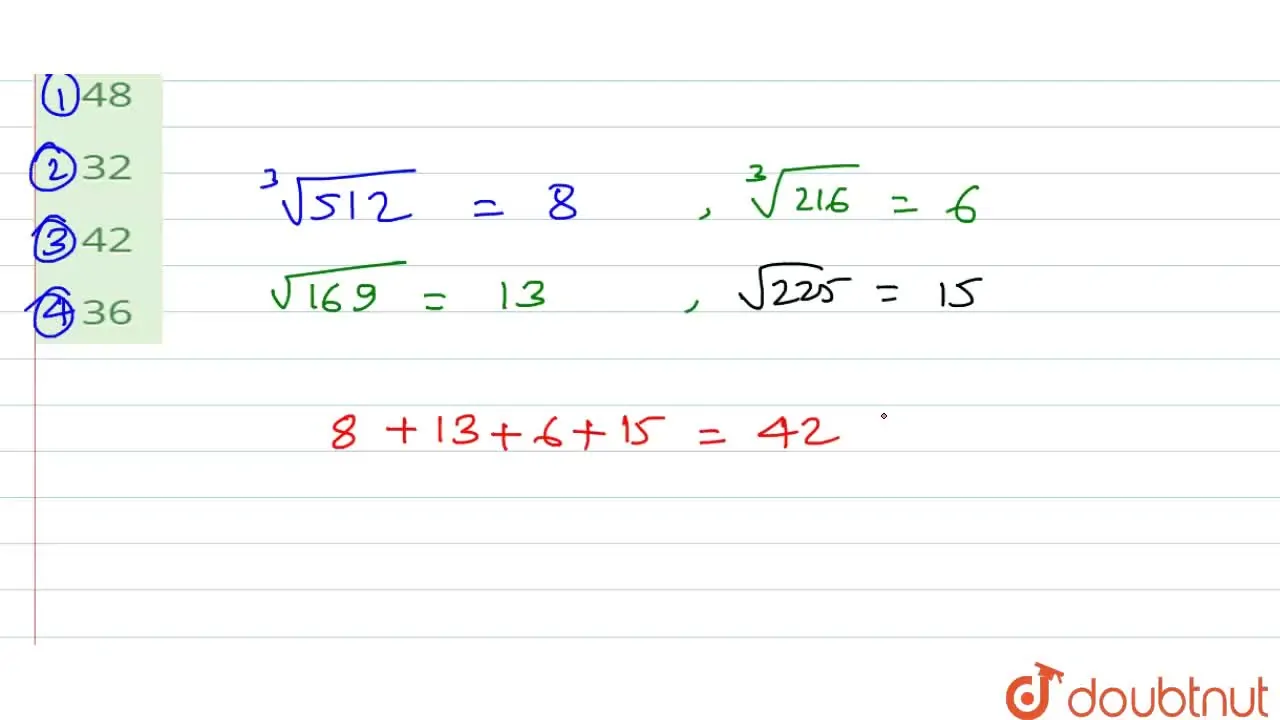 ① 48
② 32
③ 42
④ 36
∛512 = 8 , ∛216 = 6
√169 = 13 , √225 = 15
8 + 13 + 6 + 15 = 42
doubtnut